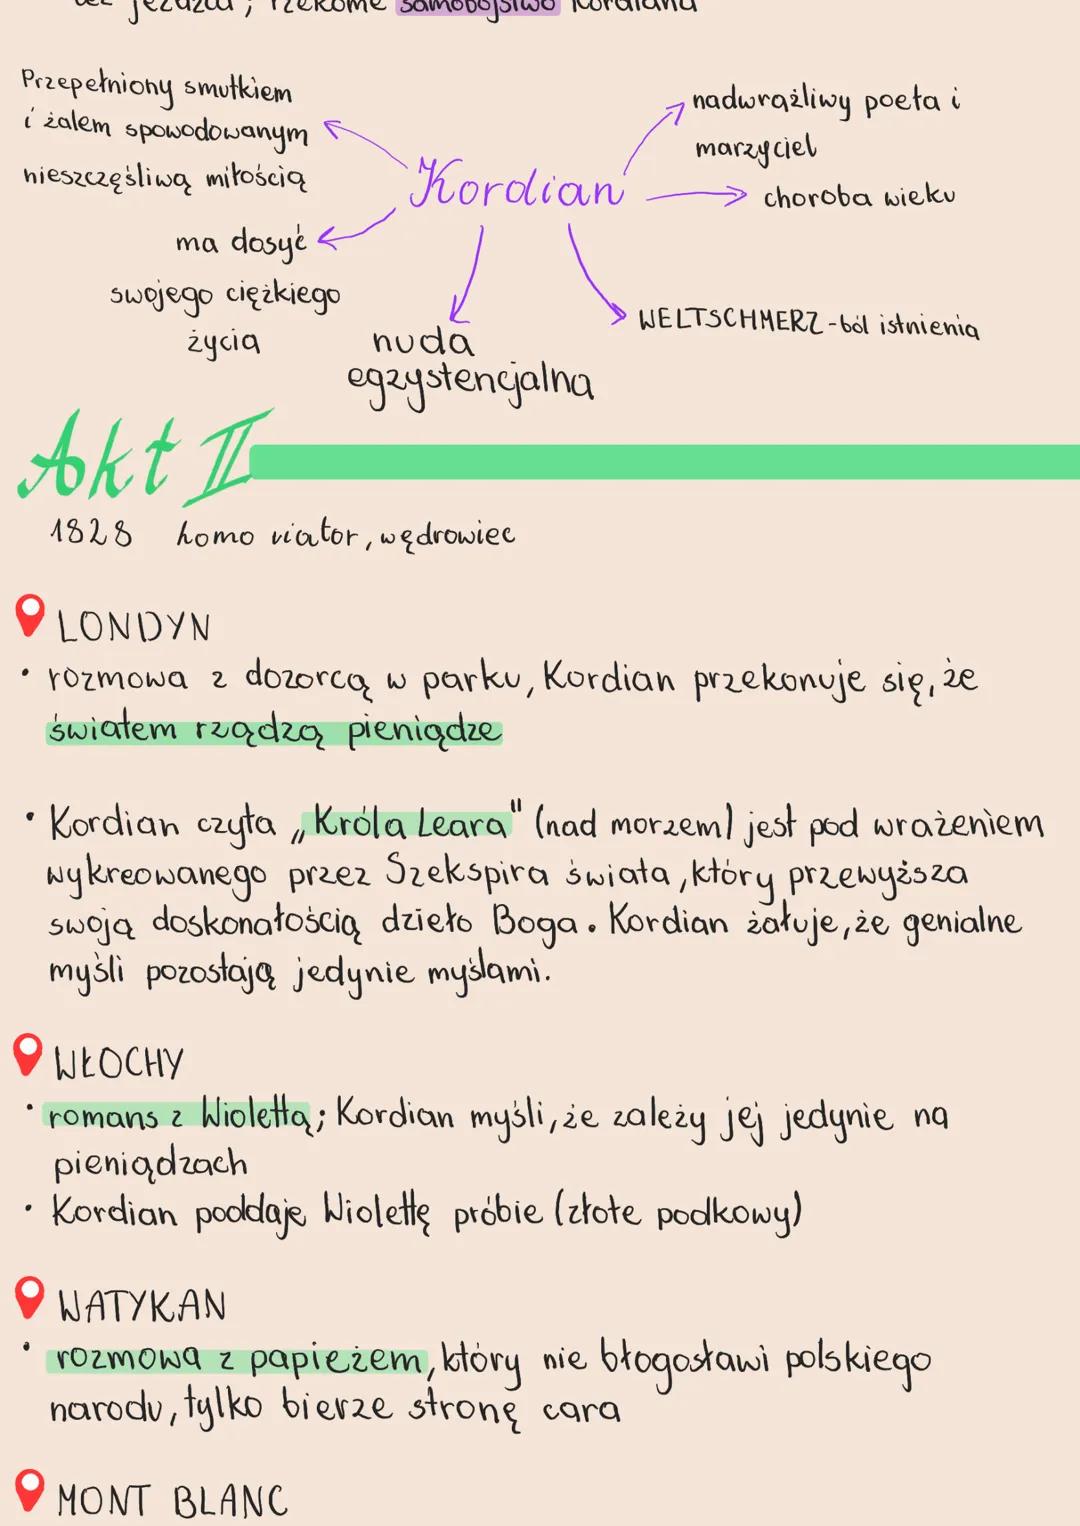 bez jeźdźca; rzekome samobójstwo Kordiana
Przepełniony smutkiem
i żalem spowodowanym
nieszczęśliwą miłością
nadwrążliwy poeta i
marzyciel
Kordian
choroba wieku
ma dosyć
swojego ciężkiego
życia
WELTSCHMERZ - ból istnienia
nuda
egzystencjalna
Akt II
1828 homo viator, wędrowiec
LONDYN
• rozmowa z dozorcą w parku, Kordian przekonuje się, że
światem rządzą pieniądze
• Kordian czyta „Króla Leara" (nad morzem) jest pod wrażeniem
wykreowanego przez Szekspira świata, który przewyższa
swoją doskonałością dzieło Boga. Kordian żałuje, że genialne
myśli pozostają jedynie myślami.
WŁOCHY
• romans z Wiolettą; Kordian myśli, że zależy jej jedynie na
pieniądzach
• Kordian poddaje Wiolettę próbie (złote podkowy)
WATYKAN
• rozmowa z papieżem, który nie błogosławi polskiego
narodu, tylko bierze stronę cara
MONT BLANC